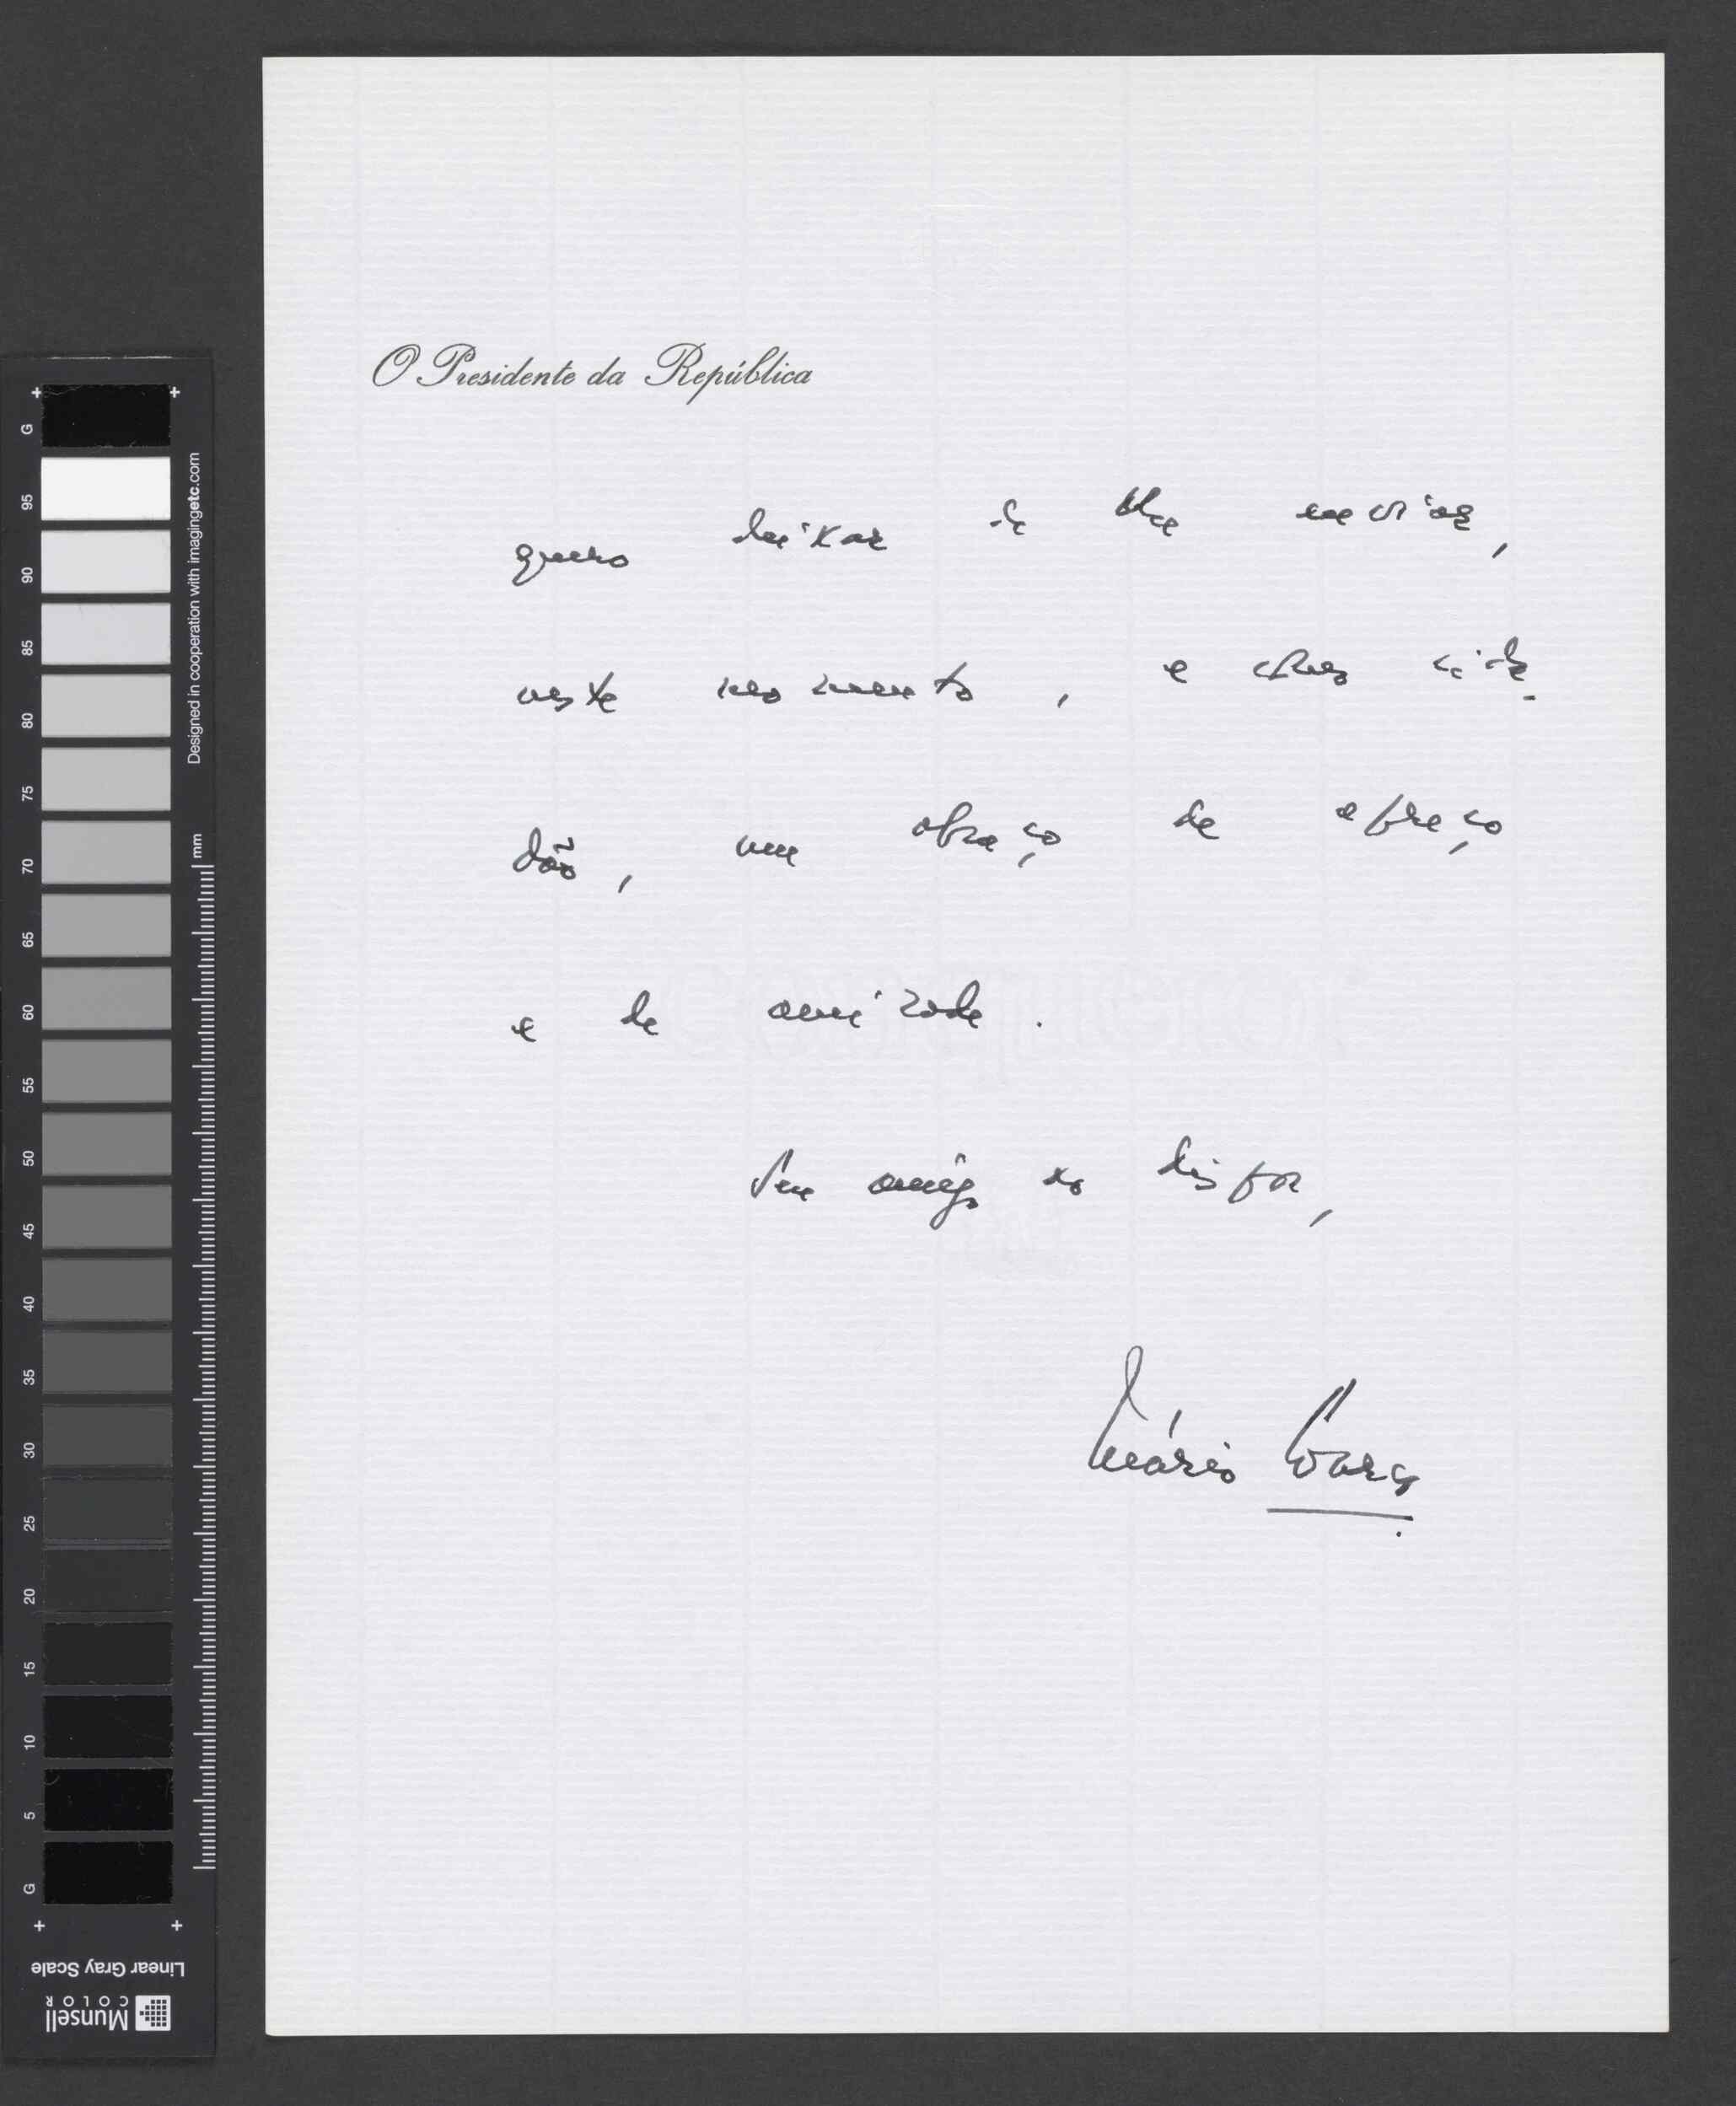 O Presidente da República
quero deixar de lhe enviar,
neste momento, e cida-
dão, um abraço de apreço
e de amizade.
Seu amigo ao dispor,
Mário Soares
G 95 90 85 80 75 70 65 60 55 50 45 40 35 30 25 20 15 10 5 G
Designed in cooperation with imagingetc.com
mm
Linear Gray Scale
Munsell
COLOR